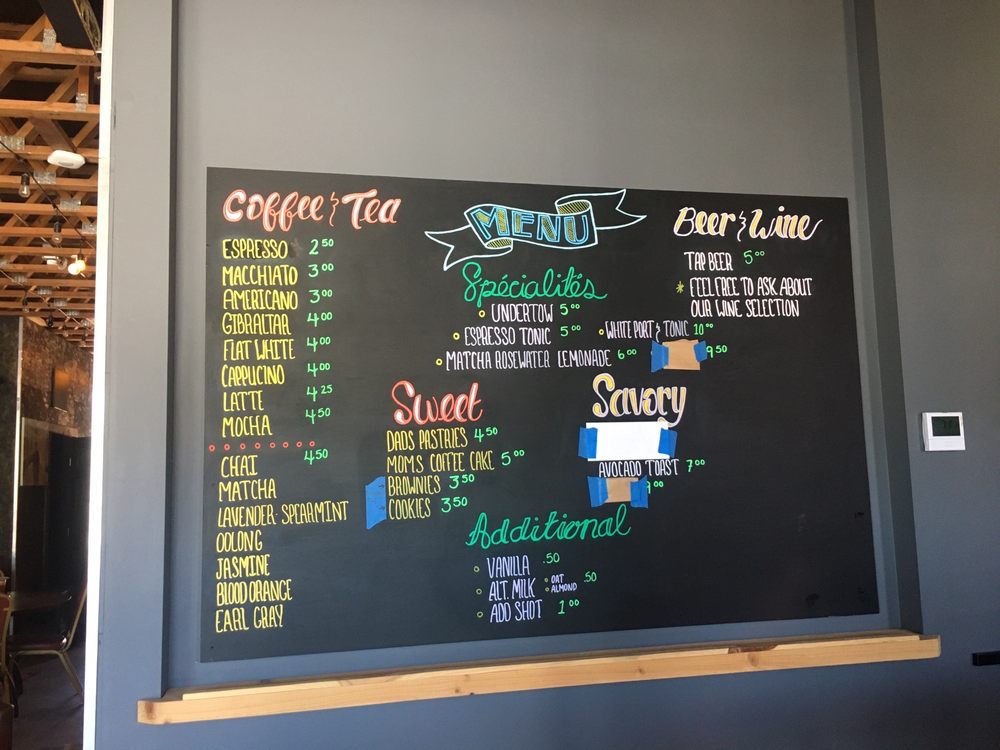 Coffee & Tea
ESPRESSO 2 50
MACCHIATO 3 00
AMERICANO 3 00
GIBRALTAR 4 00
FLAT WHITE 4 00
CAPPUCINO 4 00
LATTE 4 25
MOCHA 4 50
CHAI 4 50
MATCHA
LAVENDER·SPEARMINT
OOLONG
JASMINE
BLOOD ORANGE
EARL GRAY
MENU
Spécialités
UNDERTOW 5 00
ESPRESSO TONIC 5 00
MATCHA ROSEWATER LEMONADE 6 00
Beer & Wine
TAP BEER 5 00
* FEEL FREE TO ASK ABOUT
OUR WINE SELECTION
WHITE PORT & TONIC 10 00
9 50
Sweet
DADS PASTRIES 4 50
MOM'S COFFEE CAKE 5 00
BROWNIES 3 50
COOKIES 3 50
Savory
AVOCADO TOAST 7 00
9 00
Additional
VANILLA .50
ALT. MILK OAT .50
ALMOND
ADD SHOT 1 00